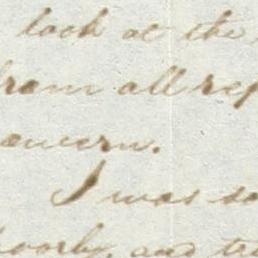 look at the
from all rep
concern.
I was so
poorly, and tr